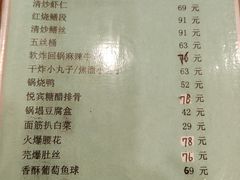 清炒虾仁 69 元
红烧鳝段 91 元
清炒鳝丝 91 元
五丝桶 52 元
软炸回锅麻辣牛 76 元
干炸小丸子/焦溜小 元
锅烧鸭 52 元
悦宾糖醋排骨 78 元
锅塌豆腐盒 42 元
面筋扒白菜 29 元
火爆腰花 78 元
芫爆肚丝 76 元
香酥葡萄鱼球 69 元